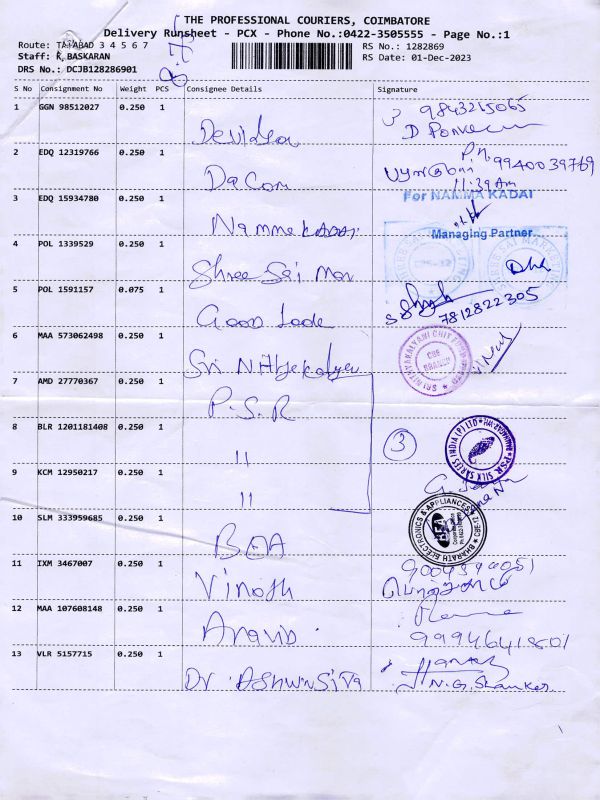 THE PROFESSIONAL COURIERS, COIMBATORE
Delivery Runsheet - PCX - Phone No.:0422-3505555 - Page No.:1
Route: TATABAD 3 4 5 6 7
RS No.: 1282869
Staff: R. BASKARAN
RS Date: 01-Dec-2023
DRS No.: DCJB128286901
S No Consignment No Weight PCS Consignee Details Signature
1 GGN 98512027 0.250 1 9843215065
2 EDQ 12319766 0.250 1 Dacom 9940039769
11:39 Am
3 EDQ 15934780 0.250 1 Namma Kadai
For NAMMA KADAI
Managing Partner
4 POL 1339529 0.250 1 Shree Sai Mar
5 POL 1591157 0.075 1 Good Lade 7812822305
6 MAA 573062498 0.250 1 Sri Nithyakalyani
SRI NITHYAKALYANI CHIT FUND
CBE
BRANCH
7 AMD 27770367 0.250 1 P.S.R
8 BLR 1201181408 0.250 1 11 3
PSR SILK SAREES INDIA (P) LTD
9 KCM 12950217 0.250 1 11
10 SLM 333959685 0.250 1 BEA
BHARATH ELECTRONICS & APPLIANCES
BEA
11 IXM 3467007 0.250 1 Vinoth
12 MAA 107608148 0.250 1 Aravind
13 VLR 5157715 0.250 1 Dr. Ashwin Siva N.G. Shanker